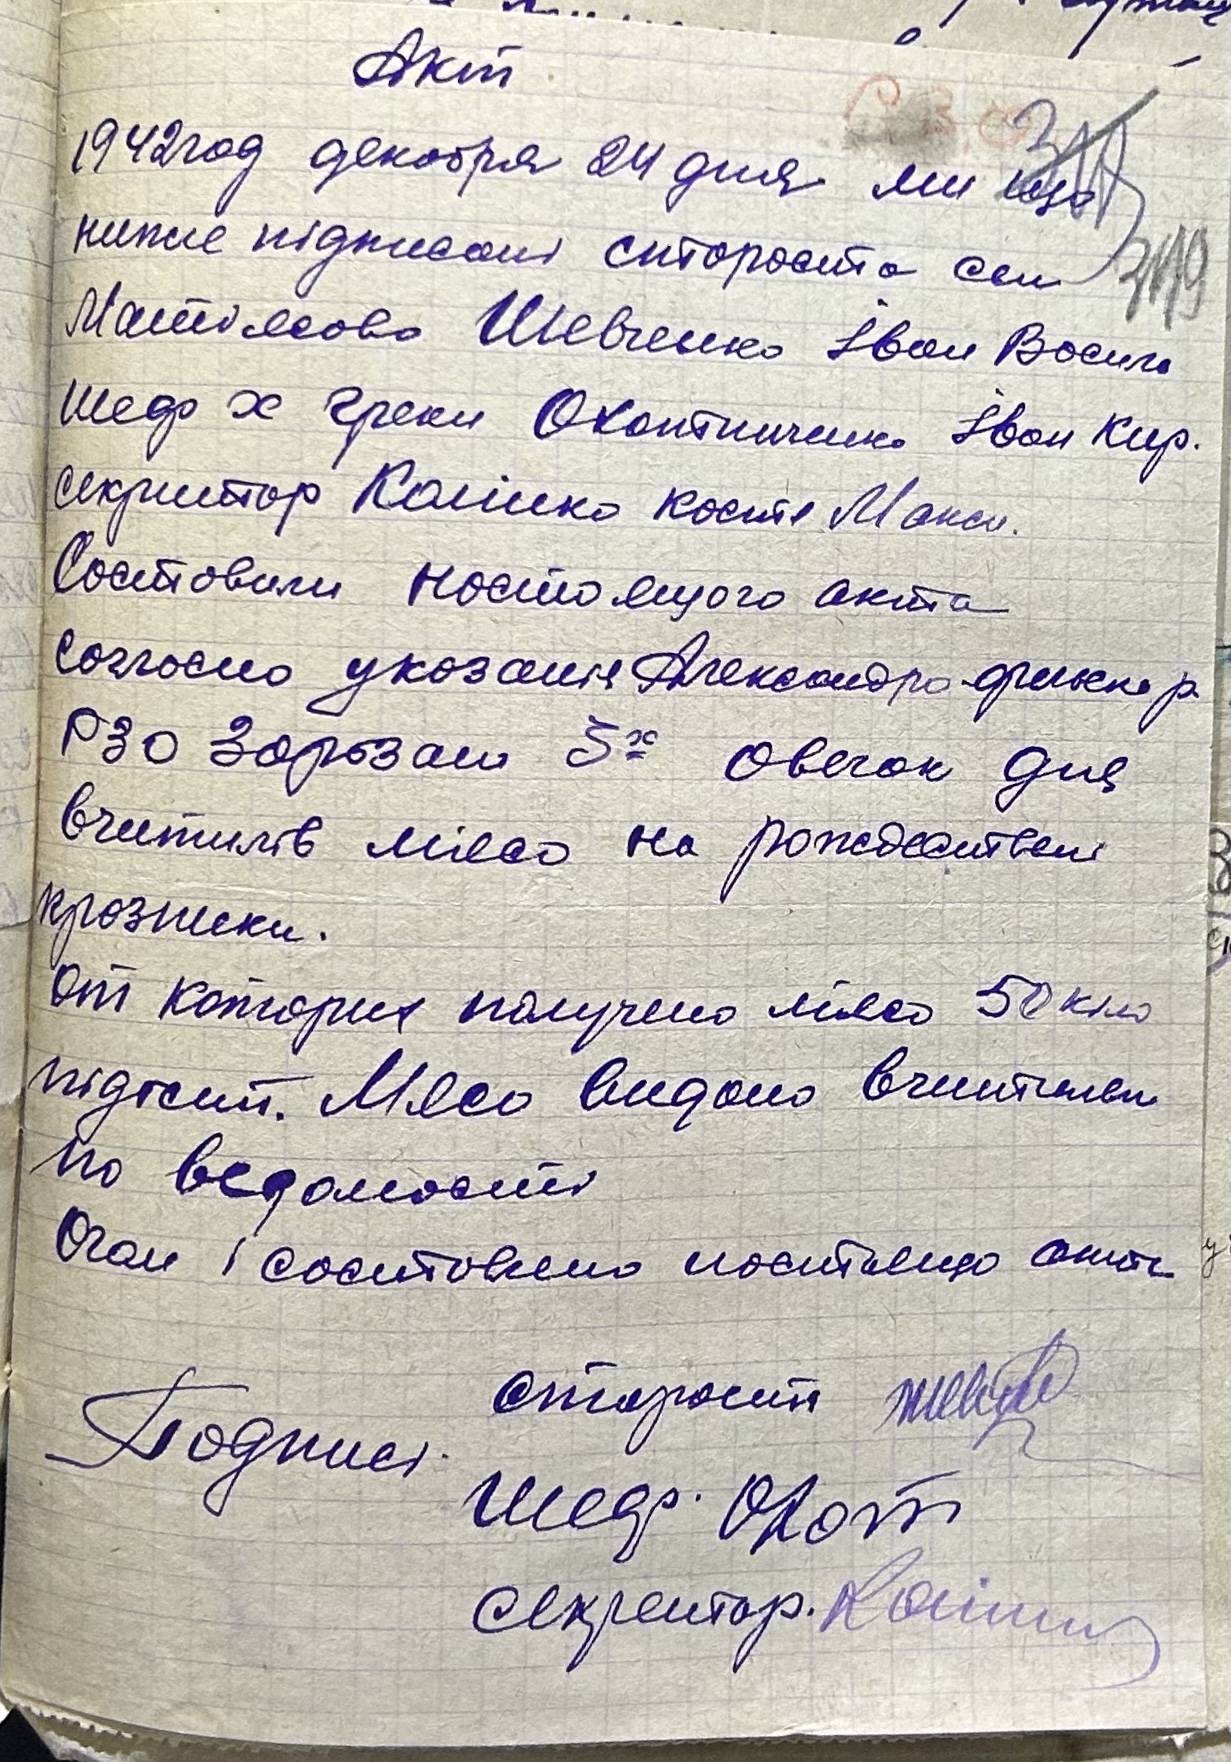 Акт
1942 год декабря 24 дня ми що
нижче підписані староста сел
Шевченко Іван Васил
Шеф х Греки Охотниченко Іван Кир.
секритар Калінко Костя Макси.
Составили настоящого акта
согласно указания Александра
РЗО Зарізали 5х овечок для
вчителів мясо на рождествені
празники.
от которих получено мясо 50 кіло
Мясо видано вчителям
по ведомости
О чом і составлено настоящо акт
староста
Подписі.
Шеф. Охот
секретар. Калінко
319